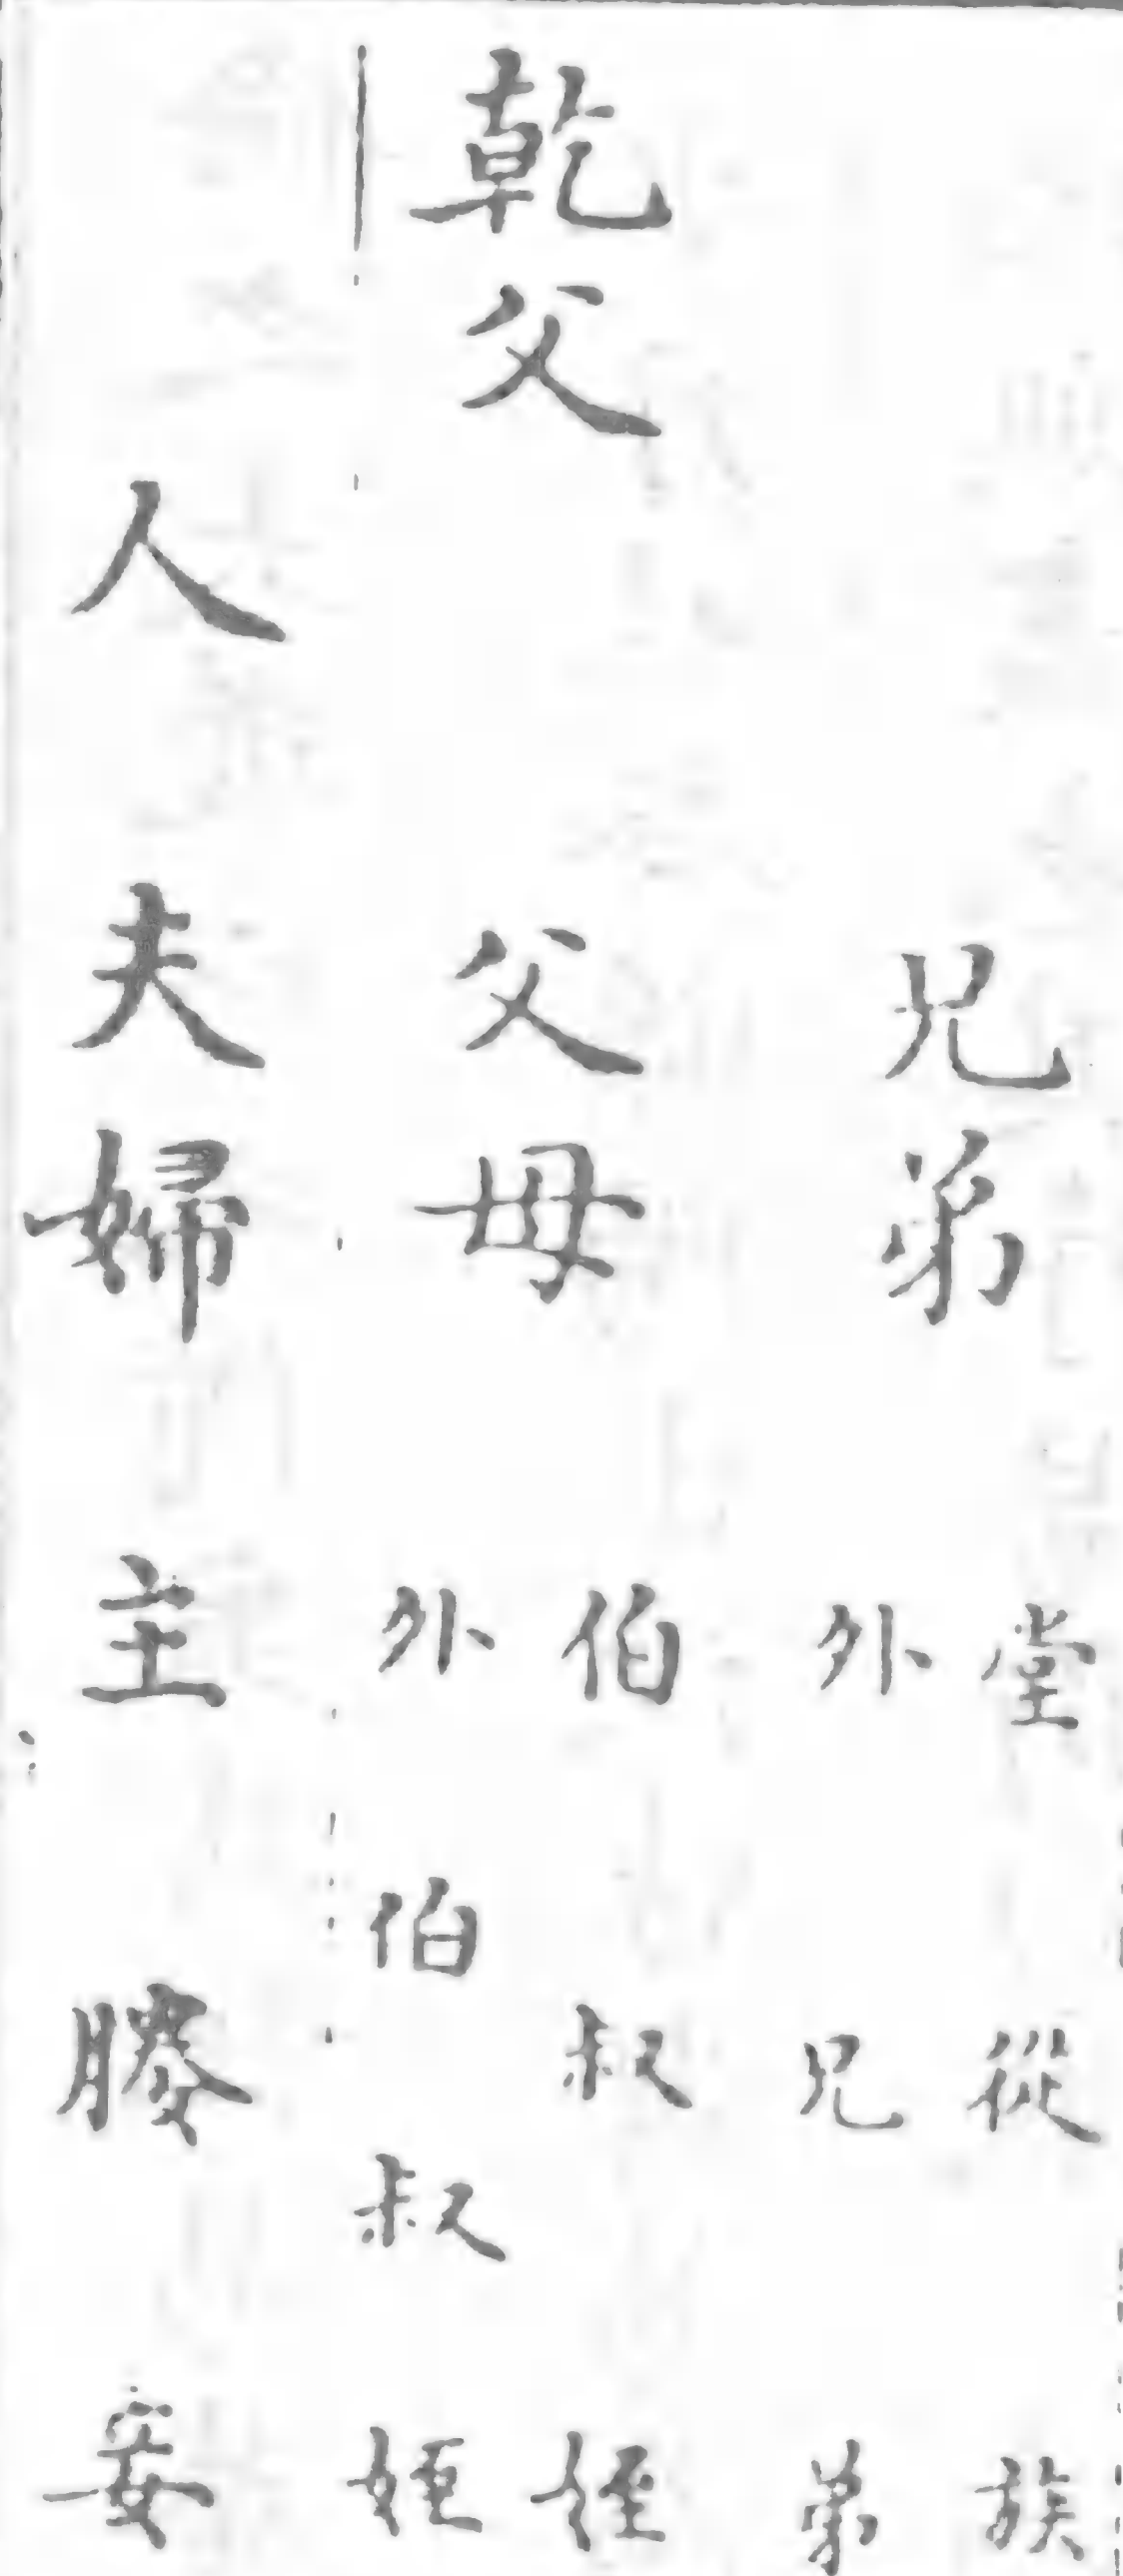 兄弟
堂從族
外兄弟
乾父
父母
伯叔姪
外伯叔姪
人
夫婦
主
媵
妾